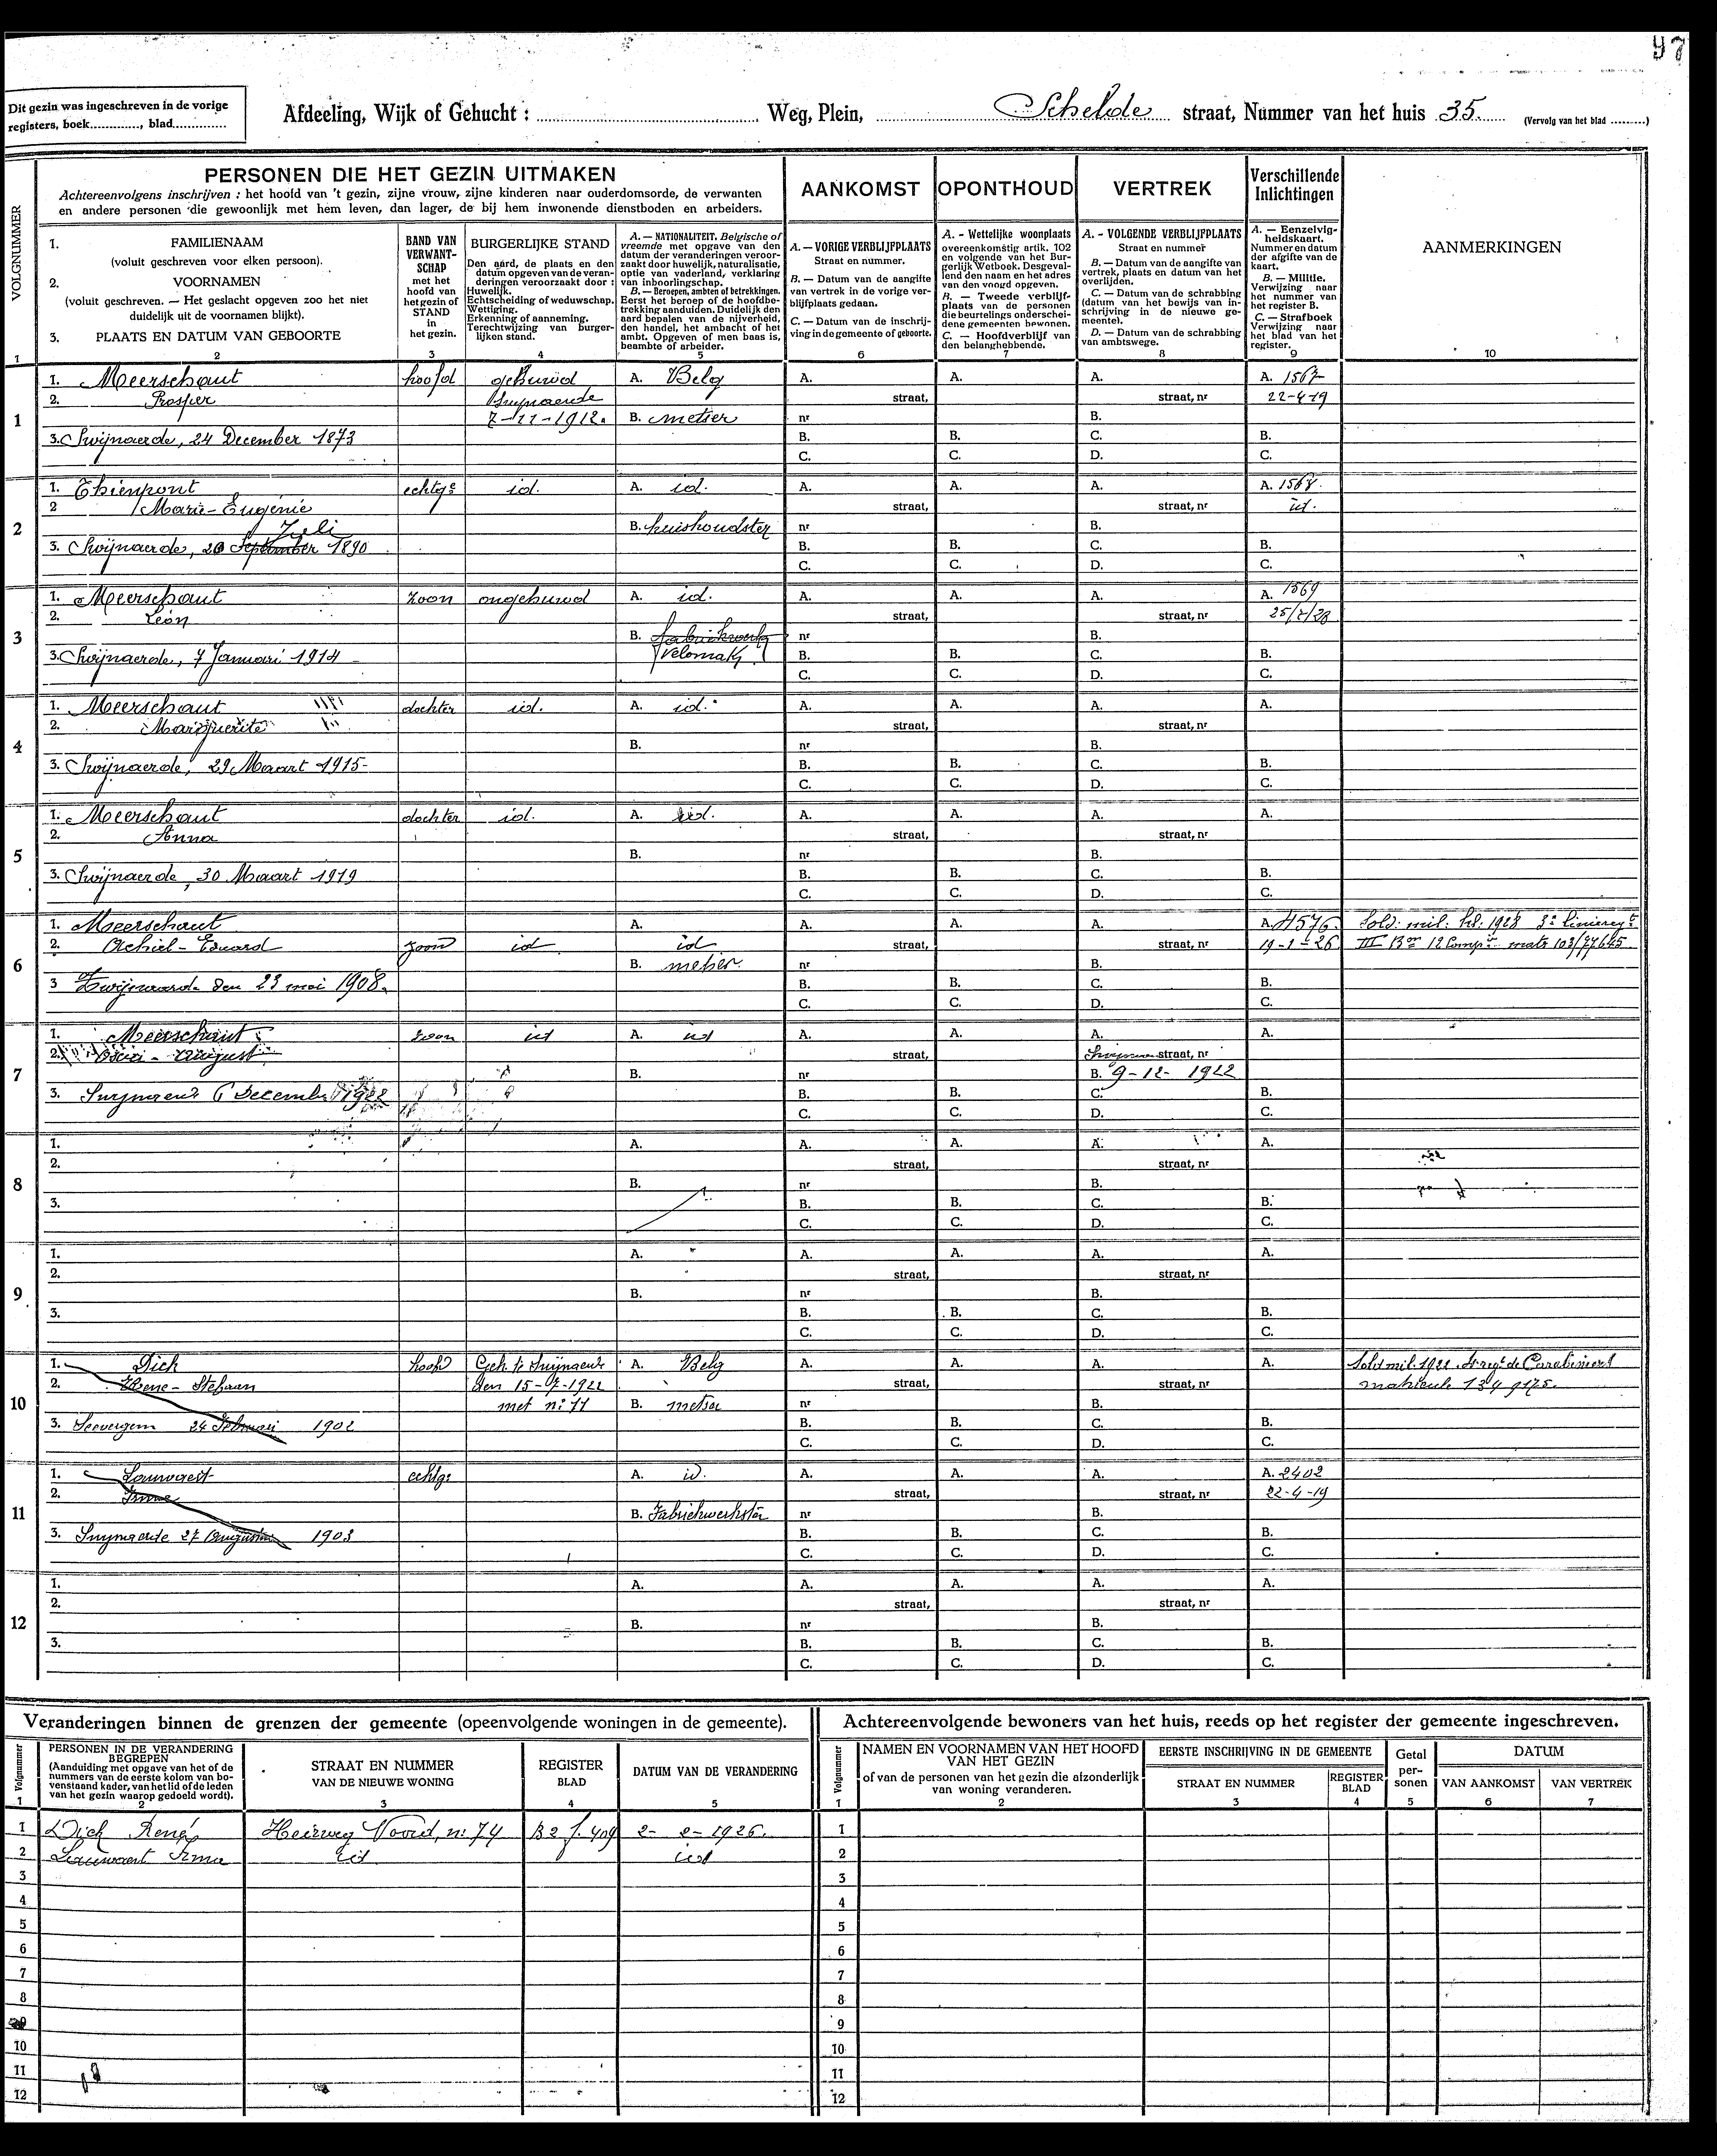 97
Dit gezin was ingeschreven in de vorige
registers, boek............, blad.............
Afdeeling, Wijk of Gehucht : ........ Weg, Plein, ........ Schelde straat, Nummer van het huis 35. (Vervolg van het blad .........)
VOLGNUMMER
PERSONEN DIE HET GEZIN UITMAKEN
Achtereenvolgens inschrijven : het hoofd van 't gezin, zijne vrouw, zijne kinderen naar ouderdomsorde, de verwanten
en andere personen die gewoonlijk met hem leven, dan lager, de bij hem inwonende dienstboden en arbeiders.
AANKOMST
OPONTHOUD
VERTREK
Verschillende
Inlichtingen
1. FAMILIENAAM
(voluit geschreven voor elken persoon).
2. VOORNAMEN
(voluit geschreven. — Het geslacht opgeven zoo het niet
duidelijk uit de voornamen blijkt).
3. PLAATS EN DATUM VAN GEBOORTE
BAND VAN
VERWANT-
SCHAP
met het
hoofd van
het gezin of
STAND
in
het gezin.
BURGERLIJKE STAND
Den aard, de plaats en den
datum opgeven van de veran-
deringen veroorzaakt door :
Huwelijk.
Echtscheiding of weduwschap.
Wettiging.
Erkenning of aanneming.
Terechtwijzing van burger-
lijken stand.
A. — NATIONALITEIT. Belgische of
vreemde met opgave van den
datum der veranderingen veroor-
zaakt door huwelijk, naturalisatie,
optie van vaderland, verklaring
van inboorlingschap.
B. — Beroepen, ambten of betrekkingen.
Eerst het beroep of de hoofdbe-
trekking aanduiden. Duidelijk den
aard bepalen van de nijverheid,
den handel, het ambacht of het
ambt. Opgeven of men baas is,
beambte of arbeider.
A. — VORIGE VERBLIJFPLAATS
Straat en nummer.
B. — Datum van de aangifte
van vertrek in de vorige ver-
blijfplaats gedaan.
C. — Datum van de inschrij-
ving in de gemeente of geboorte.
A. - Wettelijke woonplaats
overeenkomstig artik. 102
en volgende van het Bur-
gerlijk Wetboek. Desgeval-
lend den naam en het adres
van den voogd opgeven.
B. — Tweede verblijf-
plaats van de personen
die beurtelings onderschei-
dene gemeenten bewonen.
C. — Hoofdverblijf van
den belanghebbende.
A. - VOLGENDE VERBLIJFPLAATS
Straat en nummer
B. — Datum van de aangifte van
vertrek, plaats en datum van het
overlijden.
C. — Datum van de schrabbing
(datum van het bewijs van in-
schrijving in de nieuwe ge-
meente).
D. — Datum van de schrabbing
van ambtswege.
A. — Eenzelvig-
heidskaart.
Nummer en datum
der afgifte van de
kaart.
B. — Militie.
Verwijzing naar
het nummer van
het register B.
C. — Strafboek
Verwijzing naar
het blad van het
register.
AANMERKINGEN
1 2 3 4 5 6 7 8 9 10
1
1. Meerschaut hoofd gehuwd A. Belg A. A. A. A. 1567
2. Prosper Swijnaerde straat, straat, nr 22-4-19
7-11-1912. B. metser nr B.
3. Swijnaerde, 24 December 1873 B. B. C. B.
C. C. D. C.
2
1. Thienpont echtge id. A. id. A. A. A. A. 1568.
2 Marie-Eugénie straat, straat, nr id.
Juli B. huishoudster nr B.
3. Swijnaerde, 20 September 1890 B. B. C. B.
C. C. D. C.
3
1. Meerschaut zoon ongehuwd A. id. A. A. A. A. 1569
2. Léon straat, straat, nr 25/2/28
B. fabriekwerk nr B.
3. Swijnaerde, 7 Januari 1914 Velomak. B. B. C. B.
C. C. D. C.
4
1. Meerschaut dochter id. A. id. A. A. A. A.
2. Marguerite straat, straat, nr
B. nr B.
3. Swijnaerde, 29 Maart 1915 B. B. C. B.
C. C. D. C.
5
1. Meerschaut dochter id. A. id. A. A. A. A.
2. Anna straat, straat, nr
B. nr B.
3. Swijnaerde, 30 Maart 1919 B. B. C. B.
C. C. D. C.
6
1. Meerschaut A. A. A. A. A. 4576. Sold. mil. kl. 1928 3e
2. Achiel-Eduard zoon id id straat, straat, nr 19-1-26 III 12 Comp.
B. metser. nr B.
3 Zwijnaarde den 23 mei 1908. B. B. C. B.
C. C. D. C.
7
1. Meerschaut zoon id A. id A. A. A. A.
2. August straat, straat, nr
B. nr B. 9-12-1922
3. December 1922 B. B. C. B.
C. C. D. C.
8
1. A. A. A. A. A.
2. straat, straat, nr
B. nr B.
3. B. B. C. B.
C. C. D. C.
9
1. A. A. A. A. A.
2. straat, straat, nr
B. nr B.
3. B. B. C. B.
C. C. D. C.
10
1. Dick hoofd Geh. te Swijnaerde A. Belg A. A. A. A. Sold mil. 1922
2. Rene-Stefaan den 15-7-1922 straat, straat, nr
met n: 11 B. metser nr B.
3. Seevergem 24 Februari 1902 B. B. C. B.
C. C. D. C.
11
1. Louwaert echtge A. id. A. A. A. A. 2402
2. Irma straat, straat, nr 22-4-19
B. Fabriekwerkster nr B.
3. Swijnaerde 27 Augustus 1903 B. B. C. B.
C. C. D. C.
12
1. A. A. A. A. A.
2. straat, straat, nr
B. nr B.
3. B. B. C. B.
C. C. D. C.
Veranderingen binnen de grenzen der gemeente (opeenvolgende woningen in de gemeente).
Volgnummer
PERSONEN IN DE VERANDERING
BEGREPEN
(Aanduiding met opgave van het of de
nummers van de eerste kolom van bo-
venstaand kader, van het lid of de leden
van het gezin waarop gedoeld wordt).
STRAAT EN NUMMER
VAN DE NIEUWE WONING
REGISTER
BLAD
DATUM VAN DE VERANDERING
1 2 3 4 5
1 Dick René Heirweg Noord, n: 74 B2 f. 409 2-2-1926.
2 Louwaert Irma id id
3
4
5
6
7
8
9
10
11
12
Achtereenvolgende bewoners van het huis, reeds op het register der gemeente ingeschreven.
Volgnummer
NAMEN EN VOORNAMEN VAN HET HOOFD
VAN HET GEZIN
of van de personen van het gezin die afzonderlijk
van woning veranderen.
EERSTE INSCHRIJVING IN DE GEMEENTE
STRAAT EN NUMMER
REGISTER
BLAD
Getal
per-
sonen
DATUM
VAN AANKOMST
VAN VERTREK
1 2 3 4 5 6 7
1
2
3
4
5
6
7
8
9
10
11
12